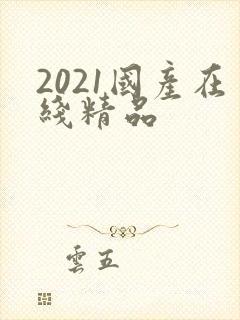 2021國產在
綫精品
雲五